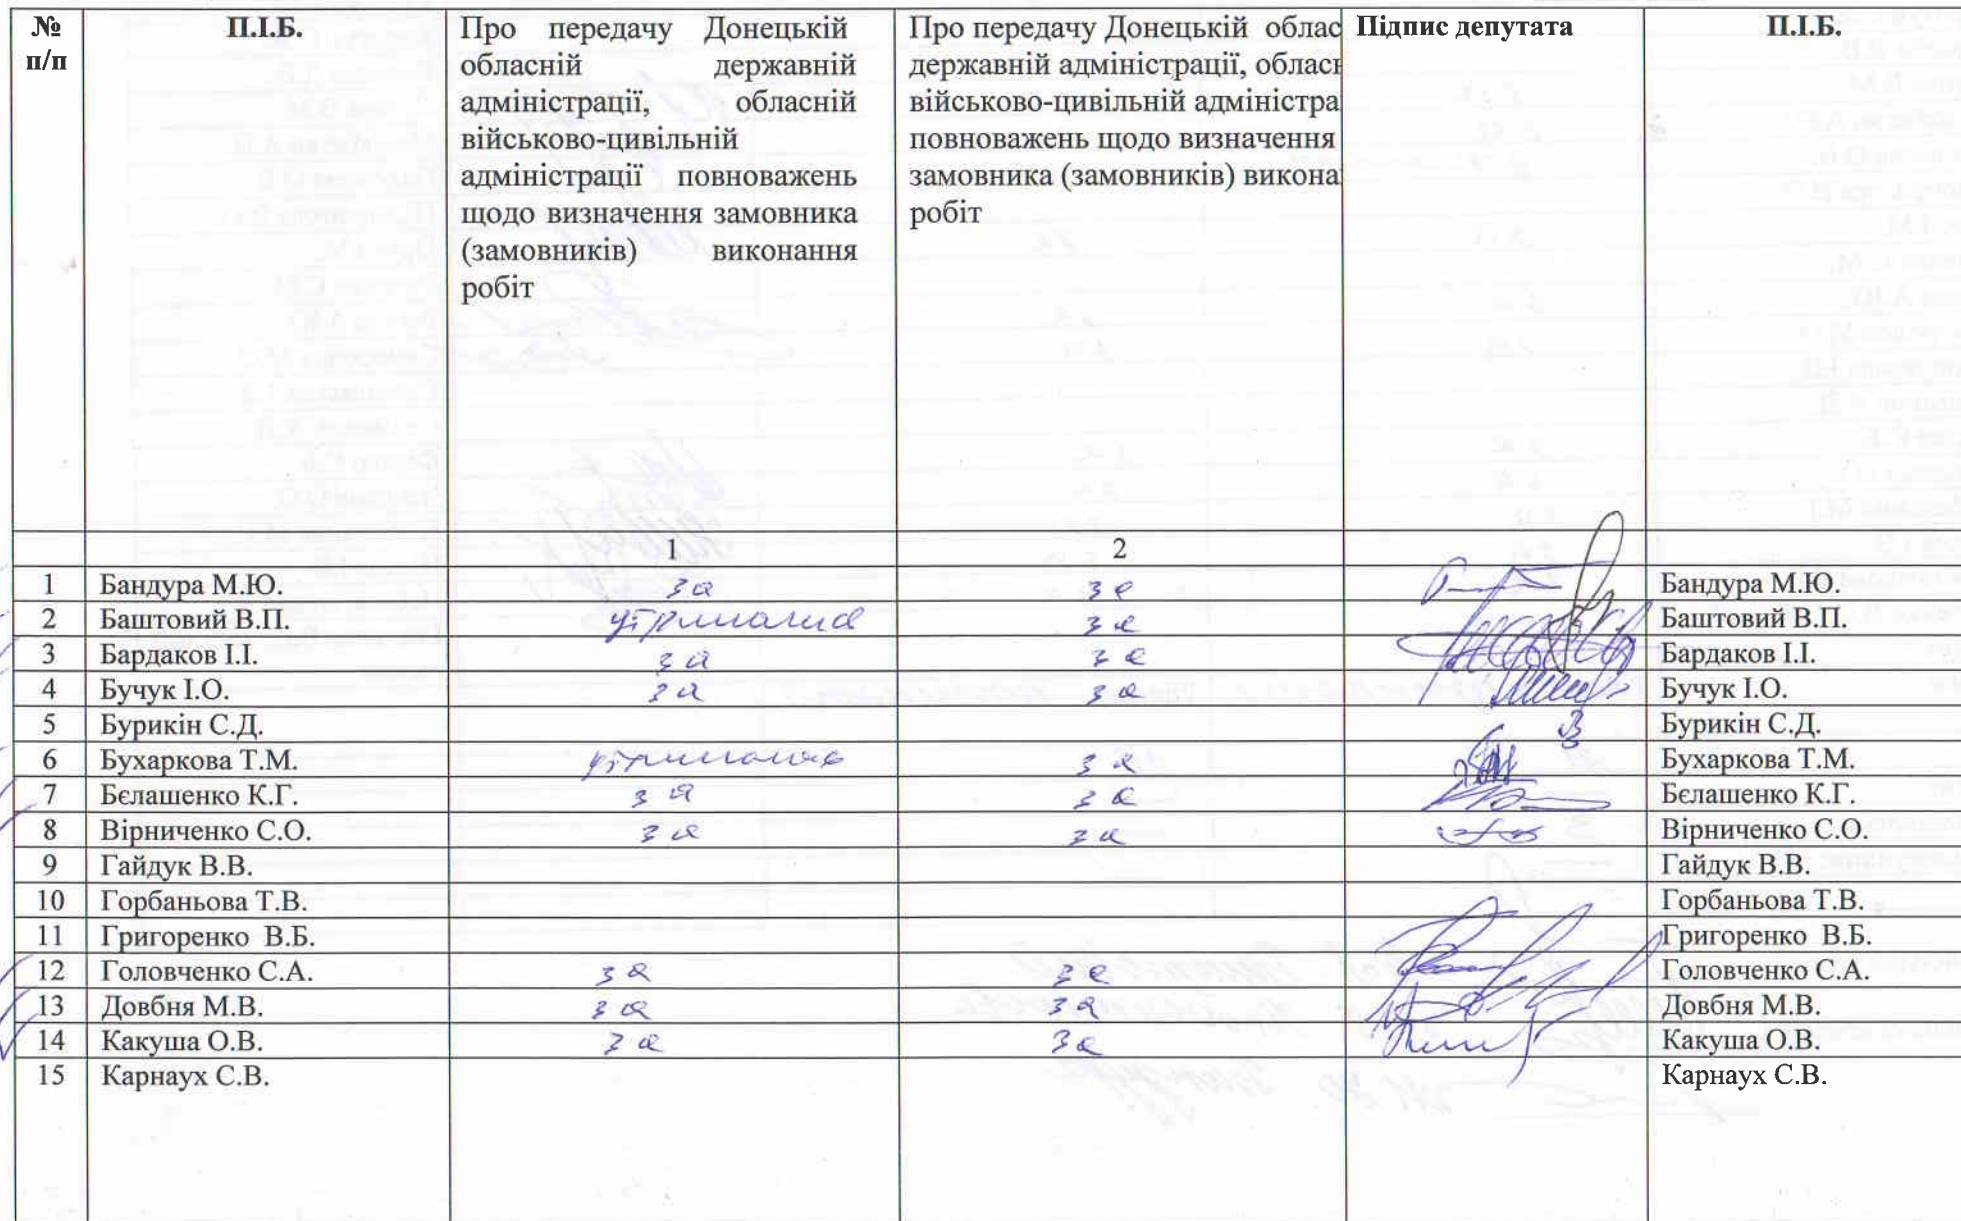 № п/п
П.І.Б.
Про передачу Донецькій
обласній державній
адміністрації, обласній
військово-цивільній
адміністрації повноважень
щодо визначення замовника
(замовників) виконання
робіт
Про передачу Донецькій облас
державній адміністрації, облас
військово-цивільній адміністра
повноважень щодо визначення
замовника (замовників) викона
робіт
Підпис депутата
П.І.Б.
1 2
1 Бандура М.Ю. за за Бандура М.Ю.
2 Баштовий В.П. за Баштовий В.П.
3 Бардаков І.І. за за Бардаков І.І.
4 Бучук І.О. за за Бучук І.О.
5 Бурикін С.Д. Бурикін С.Д.
6 Бухаркова Т.М. за Бухаркова Т.М.
7 Бєлашенко К.Г. за за Бєлашенко К.Г.
8 Вірниченко С.О. за за Вірниченко С.О.
9 Гайдук В.В. Гайдук В.В.
10 Горбаньова Т.В. Горбаньова Т.В.
11 Григоренко В.Б. Григоренко В.Б.
12 Головченко С.А. за за Головченко С.А.
13 Довбня М.В. за за Довбня М.В.
14 Какуша О.В. за за Какуша О.В.
15 Карнаух С.В. Карнаух С.В.